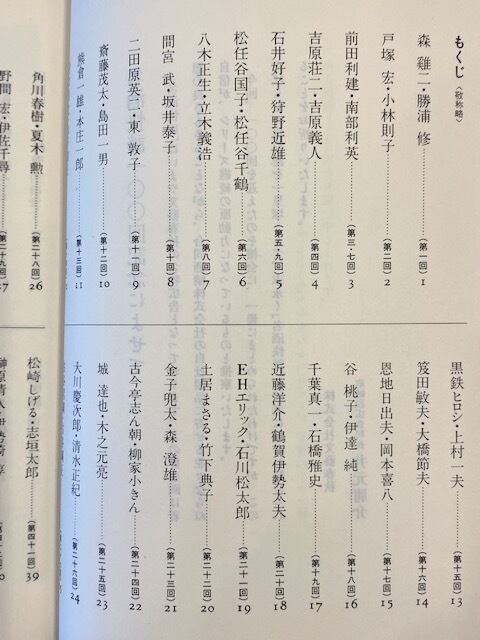 もくじ〈敬称略〉
森 雞二・勝浦 修……（第一回）1
戸塚 宏・小林則子……（第二回）2
前田利建・南部利英……（第三・七回）3
吉原荘二・吉原義人……（第四回）4
石井好子・狩野近雄……（第五・九回）5
松任谷国子・松任谷千鶴……（第六回）6
八木正生・立木義浩……（第八回）7
間宮 武・坂井泰子……（第十回）8
二田原英二・東 敦子……（第十一回）9
斎藤茂太・島田一男……（第十二回）10
熊倉一雄・本庄一郎……（第十三回）11
黒鉄ヒロシ・上村一夫……（第十五回）13
笈田敏夫・大橋節夫……（第十六回）14
恩地日出夫・岡本喜八……（第十七回）15
谷 桃子・伊達 純……（第十八回）16
千葉真一・石橋雅史……（第十九回）17
近藤洋介・鶴賀伊勢太夫……（第二十回）18
EHエリック・石川松太郎……（第二十一回）19
土居まさる・竹下典子……（第二十二回）20
金子兜太・森 澄雄……（第二十三回）21
古今亭志ん朝・柳家小きん……（第二十四回）22
城 達也・木之元亮……（第二十五回）23
大川慶次郎・清水正紀……（第二十六回）24
角川春樹・夏木 勲……（第二十八回）26
野間 宏・伊佐千尋……（第二十九回）27
松崎しげる・志垣太郎……（第四十一回）39